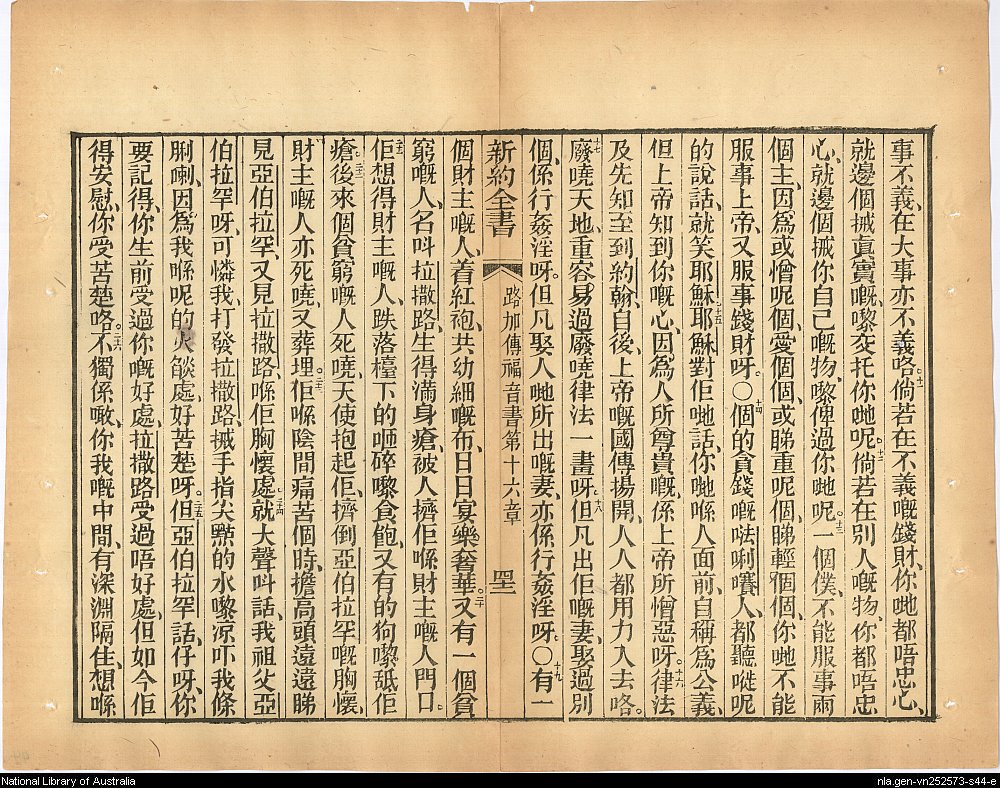 事不義、在大事亦不義咯。十一倘若在不義嘅錢財、你哋都唔忠心、
就邊個搣眞實嘅嚟交托你哋呢。十二倘若在別人嘅物、你都唔忠
心、就邊個搣你自己嘅物、嚟俾過你哋呢。十三一個僕、不能服事兩
個主、因爲或憎呢個、愛個個、或睇重呢個、睇輕個個、你哋不能
服事上帝、又服事錢財呀。〇十四個的貪錢嘅𠵽唎㘔人、都聽嘥呢
的說話、就笑耶穌、十五耶穌對佢哋話、你哋喺人面前、自稱爲公義、
但上帝知到你嘅心、因爲人所尊貴嘅、係上帝所憎惡呀。十六律法
及先知至到約翰、自後、上帝嘅國傳揚開、人人都用力入去咯。
十七廢嘵天地、重容易過廢嘵律法一畫呀。十八但凡出佢嘅妻、娶過別
個、係行姦淫呀。但凡娶人哋所出嘅妻、亦係行姦淫呀。〇十九有一
新約全書 路加傳福音書第十六章 四十二
個財主嘅人、着紅袍、共幼細嘅布、日日宴樂奢華。二十又有一個貧
窮嘅人、名呌拉撒路、生得滿身瘡、被人擠佢喺財主嘅人門口。
二一佢想得財主嘅人、跌落檯下的咂碎嚟食飽、又有的狗嚟舐佢
瘡。二二後來個貧窮嘅人死嘵、天使抱起佢、擠倒亞伯拉罕嘅胸懷、
財主嘅人亦死嘵、又葬埋。二三佢喺陰間痛苦個時、擔高頭遠遠睇
見亞伯拉罕、又見拉撒路喺佢胸懷處、二四就大聲呌話、我祖父亞
伯拉罕呀、可憐我、打發拉撒路、搣手指尖㸃的水嚟凉吓我條
脷喇、因爲我喺呢的火燄處、好苦楚呀。二五但亞伯拉罕話、仔呀、你
要記得、你生前受過你嘅好處、拉撒路受過唔好處、但如今佢
得安慰、你受苦楚咯。二六不獨係噉、你我嘅中間、有深淵隔住、想喺
National Library of Australia
nla.gen-vn252573-s44-e